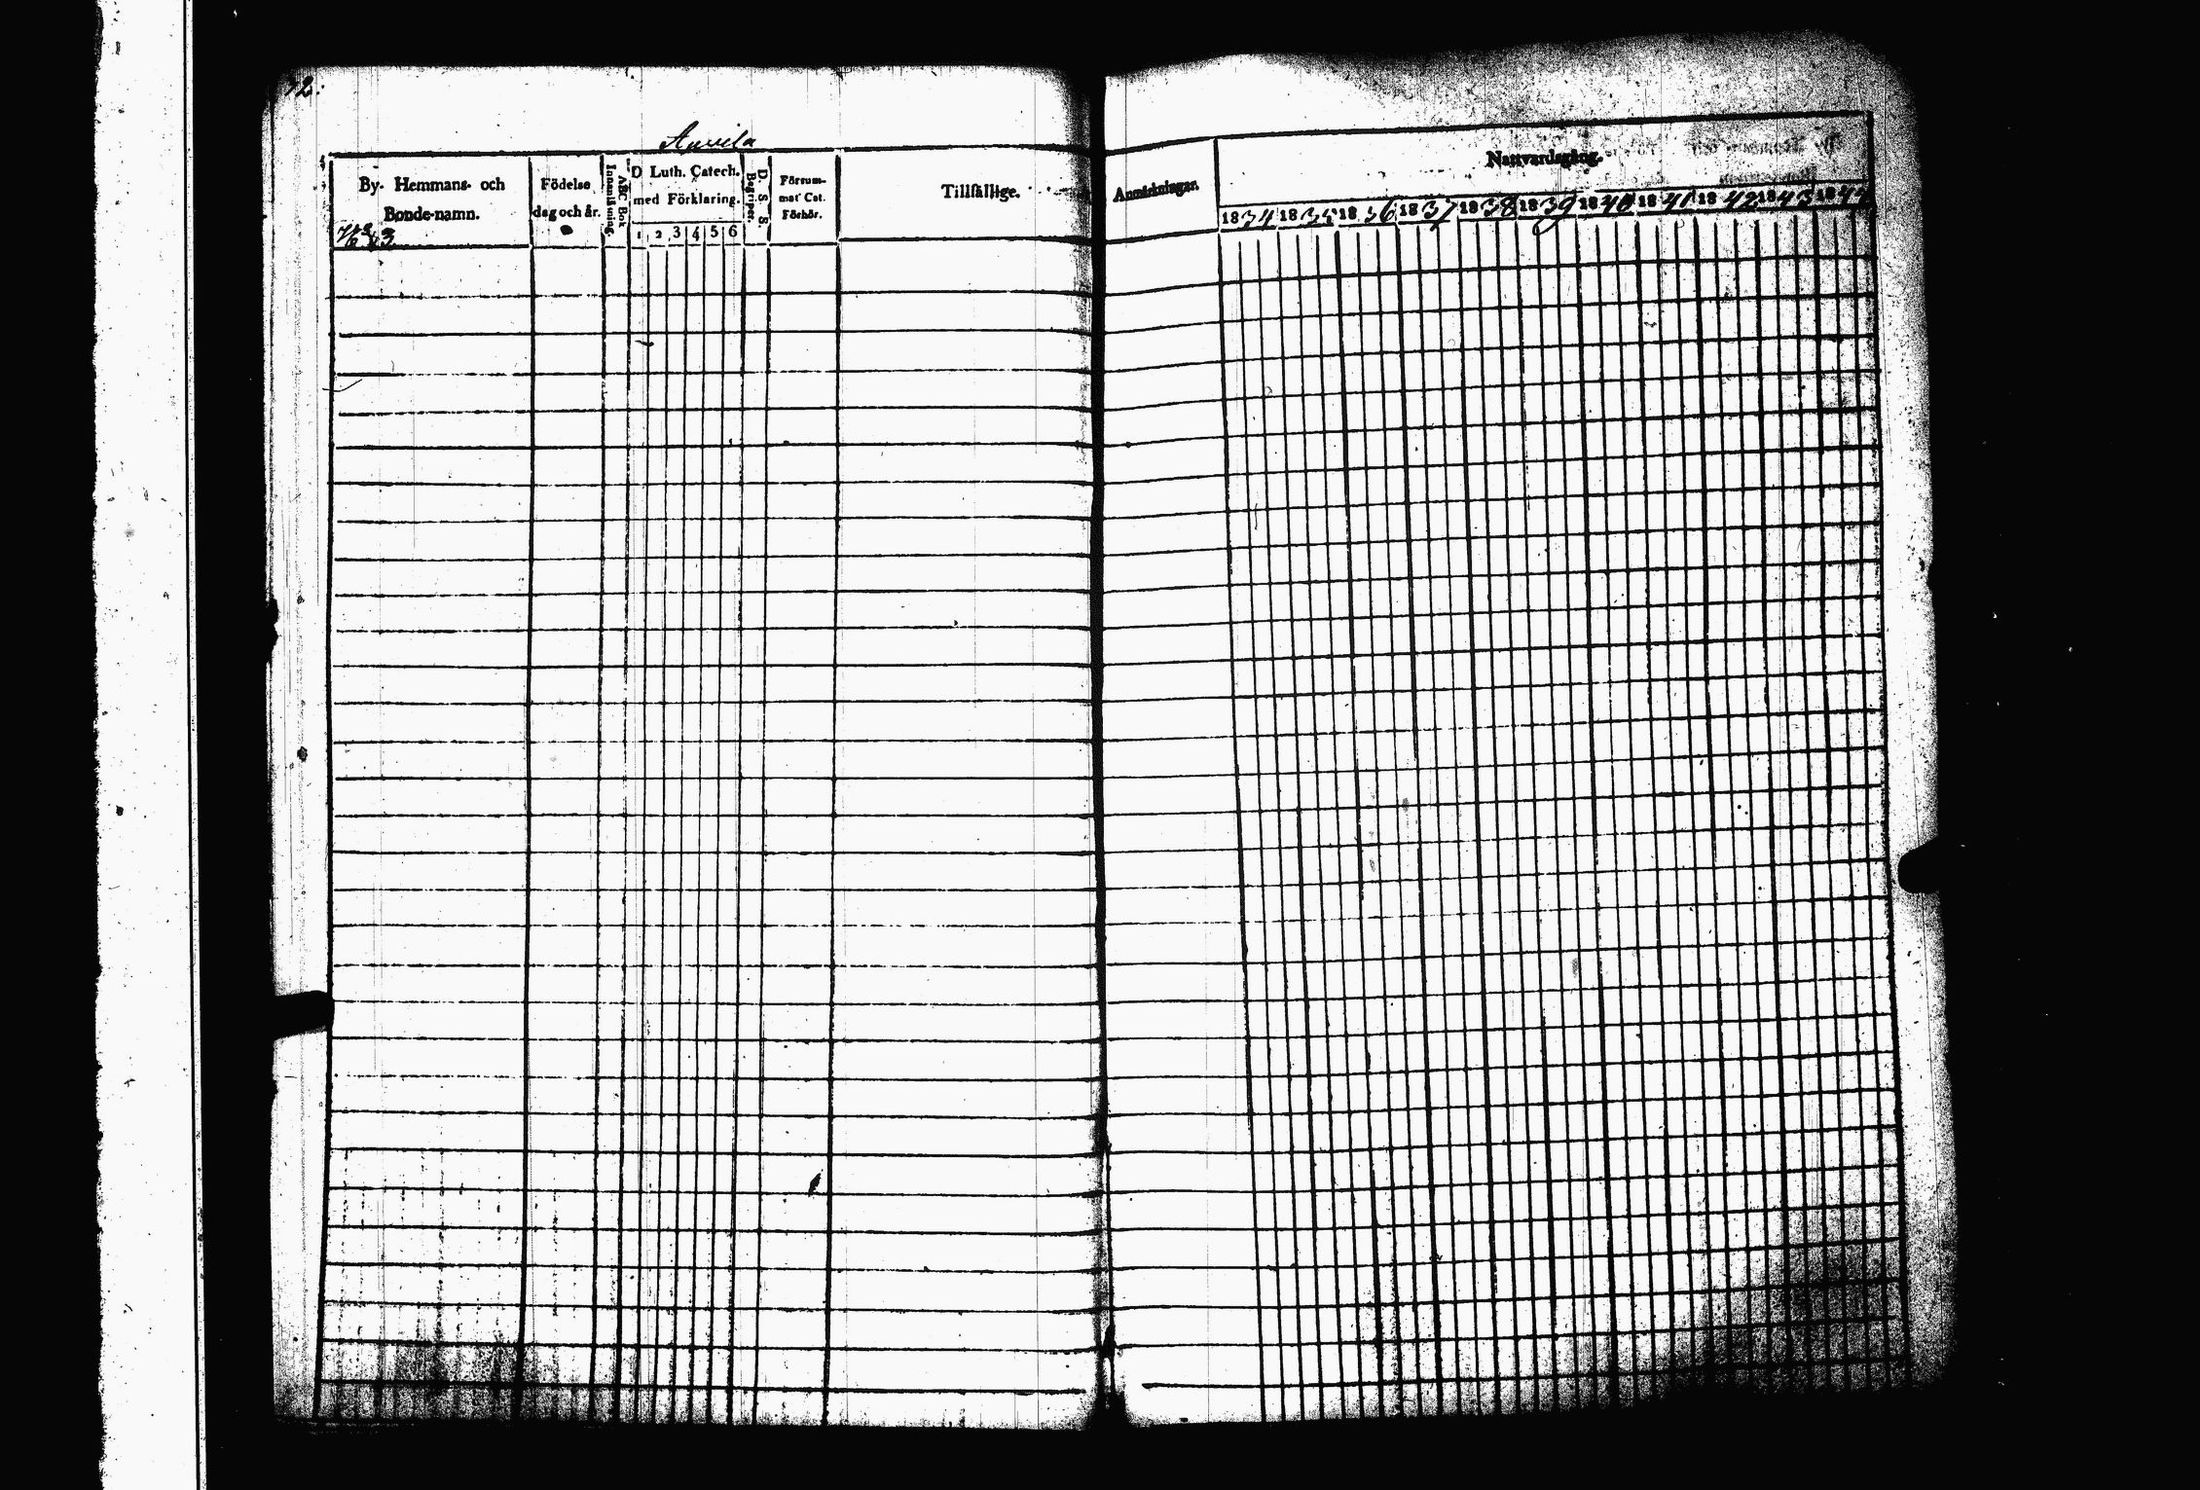 2.
Anvila
By- Hemmans- och
Bonde-namn.
Födelse
dag och år.
Innanläsning.
ABC Bok
D Luth. Catech.
med Förklaring.
1 2 3 4 5 6
D. S. S.
Begriper.
Försum-
mat Cat.
Förhör.
Tillfällige.
Anmärkningar.
Nattvardsgång.
1834 1835 1836 1837 1838 1839 1840 1841 1842 1843 1844